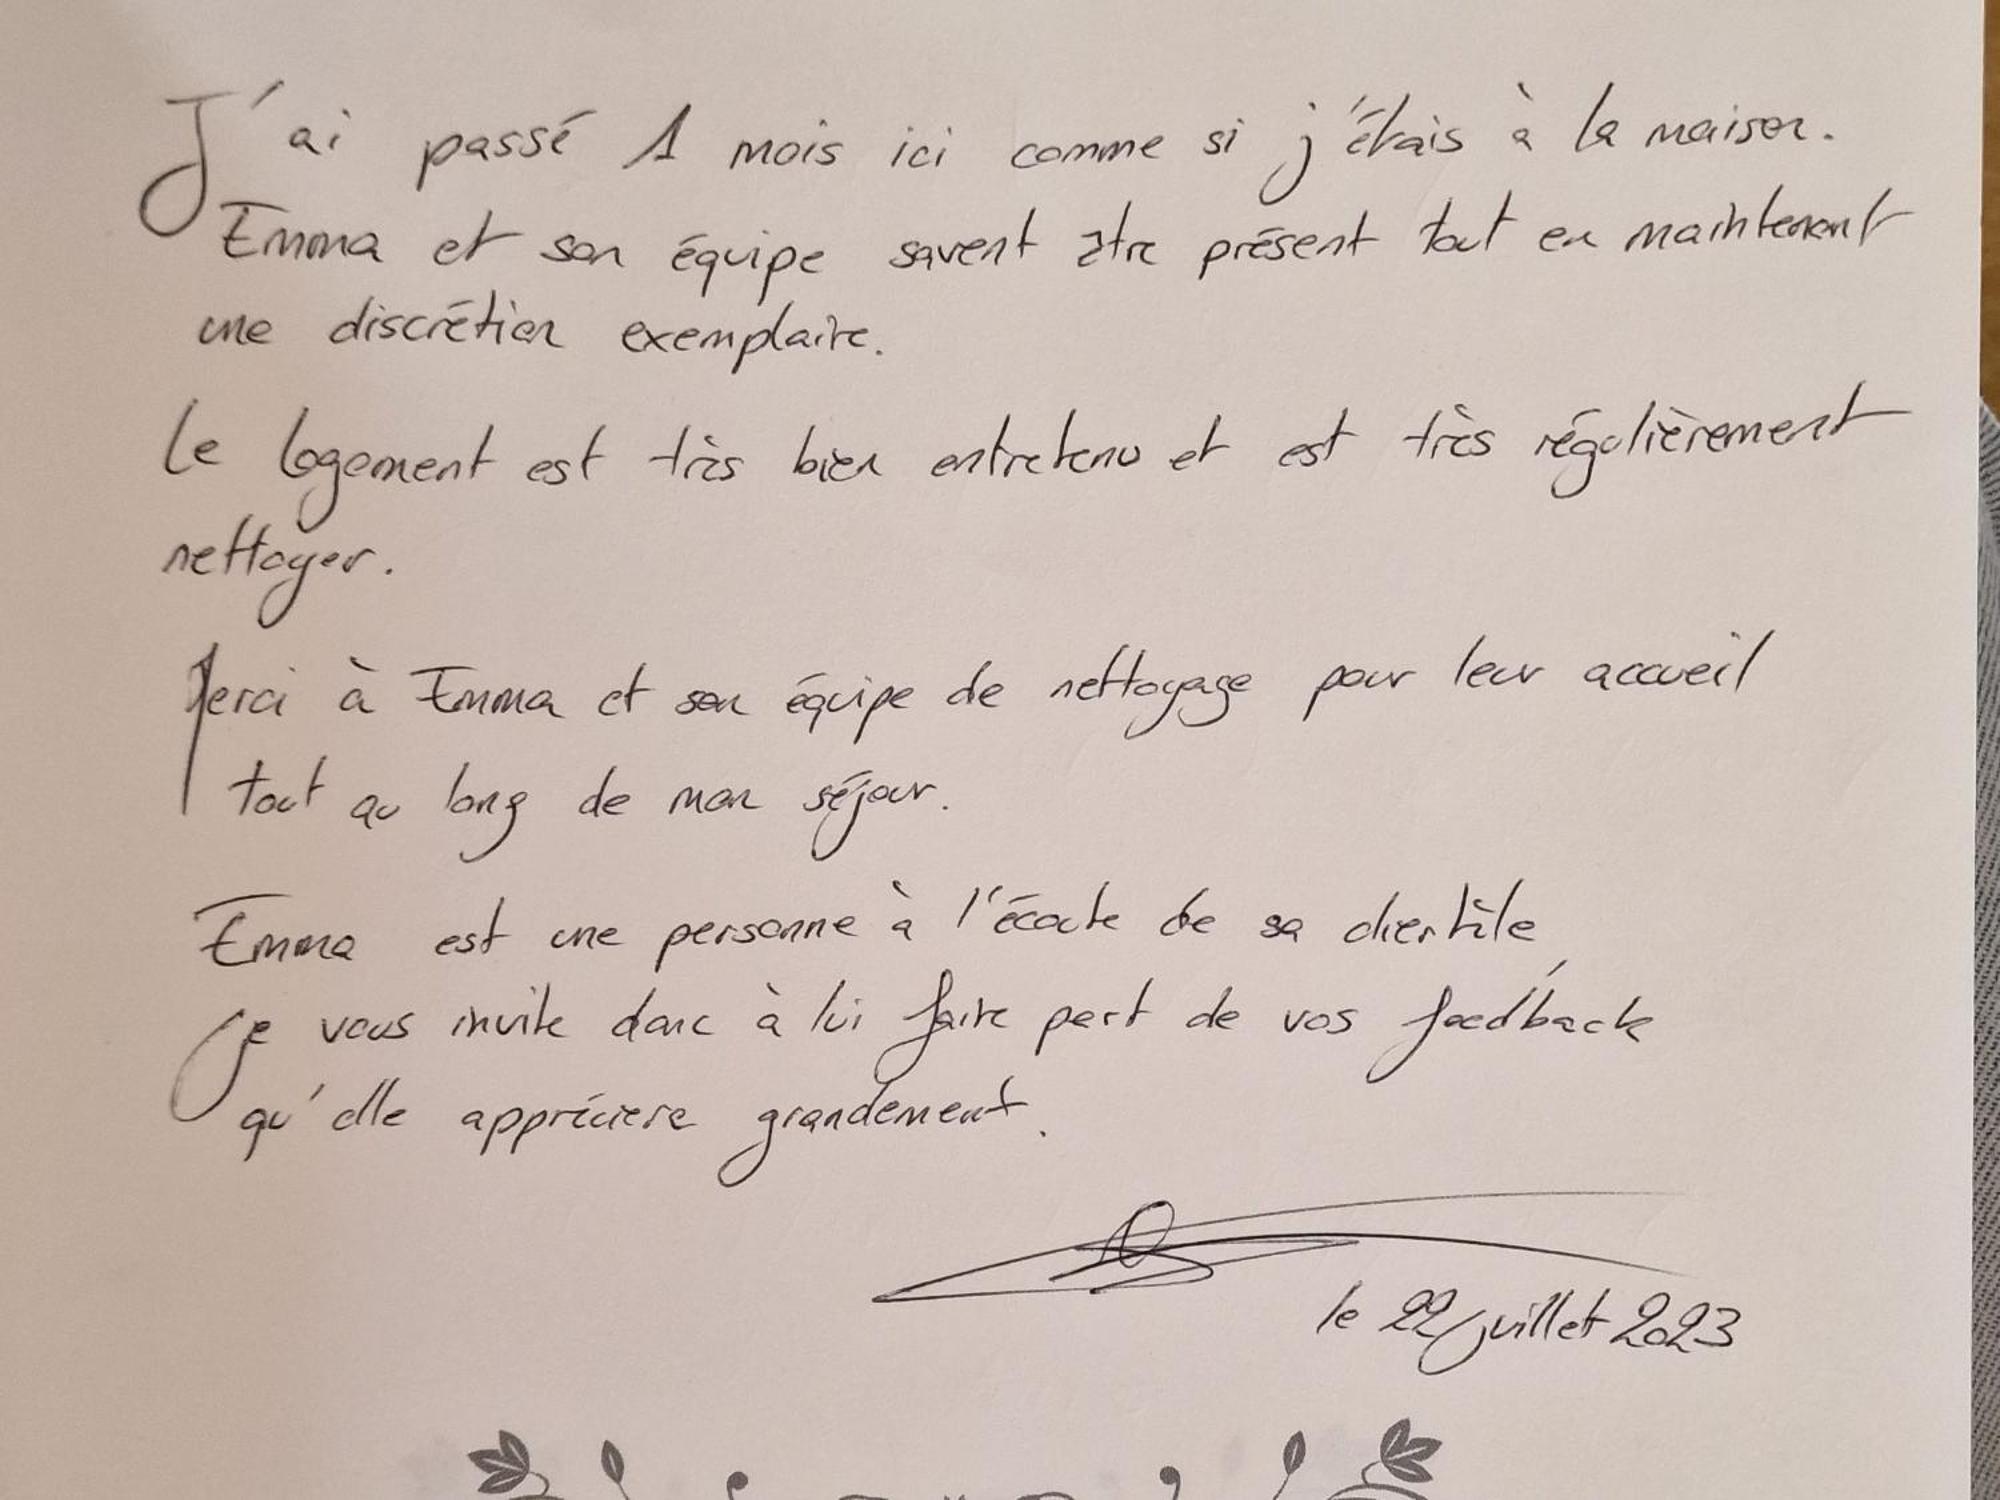 J'ai passé 1 mois ici comme si j'étais à la maison.
Emma et son équipe savent être présent tout en maintenant
une discrétion exemplaire.
Le logement est très bien entretenu et est très régulièrement
nettoyer.
Merci à Emma et son équipe de nettoyage pour leur accueil
tout au long de mon séjour.
Emma est une personne à l'écoute de sa clientèle,
je vous invite donc à lui faire part de vos feedback
qu'elle appréciera grandement.
le 22 juillet 2023